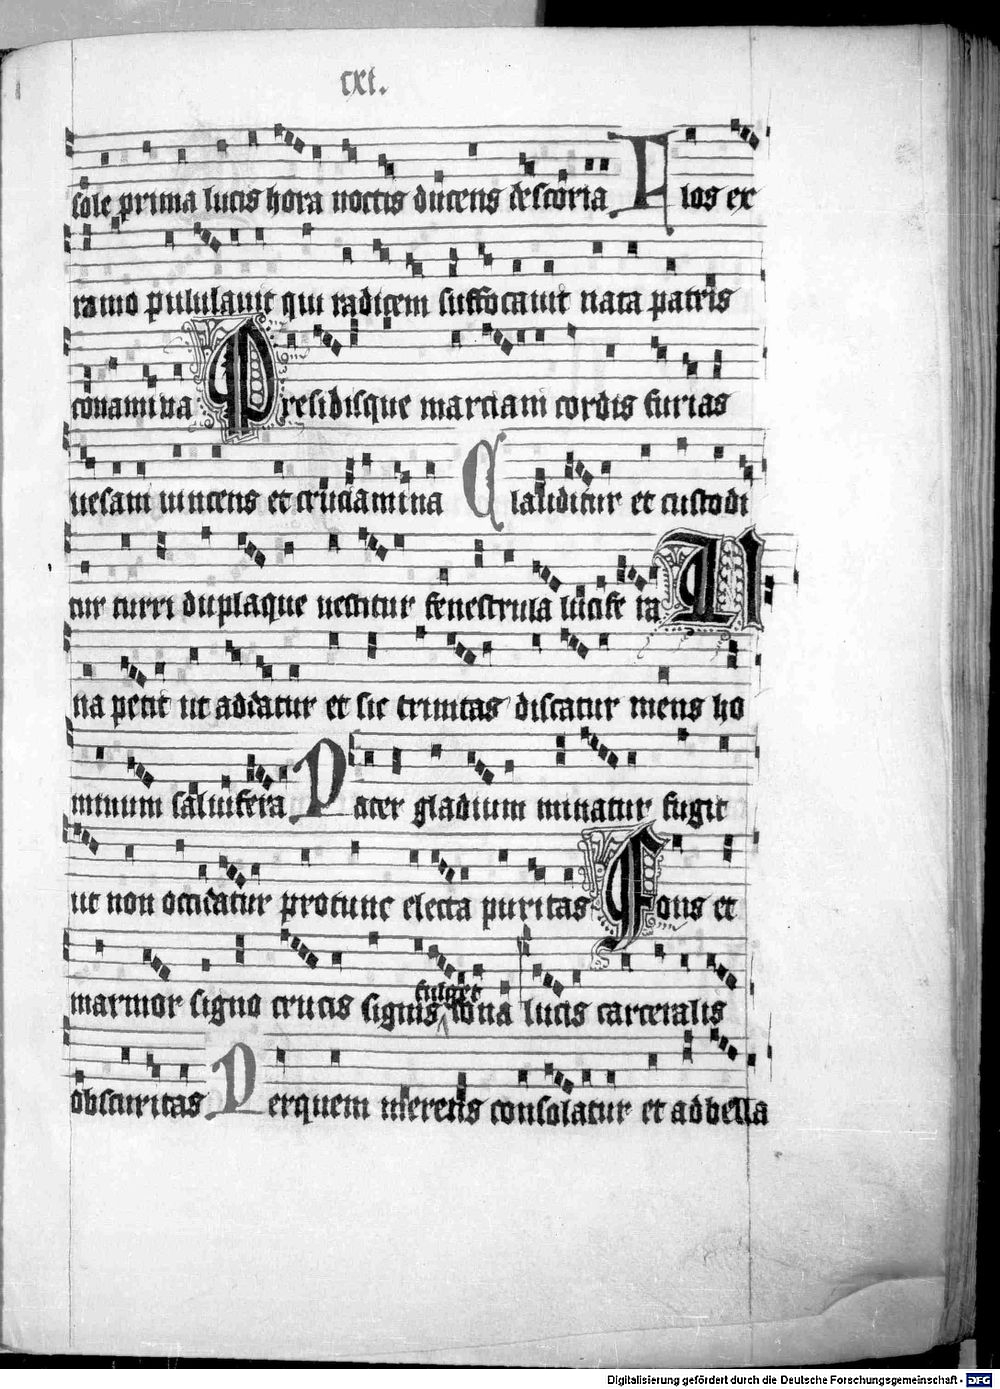 cxi.
sole prima lucis hora noctis ducens descoria Flos ex
ramo pululauit qui radicem suffocauit nata patris
conamina Presidisque marciam cordis furias
uesam uincens et cruciamina Clauditur et custodi
tur turri duplaque uestitur fenestrula lucifera U
na petit ut addatur et sic trinitas discatur mens ho
minum saluifera Pater gladium minatur fugit
ut non occidatur protunc electa puritas Fons et
fulget
marmor signo crucis signis, lucis carceralis
obscuritas Perquem merens consolatur et ad bella
Digitalisierung gefördert durch die Deutsche Forschungsgemeinschaft - DFG